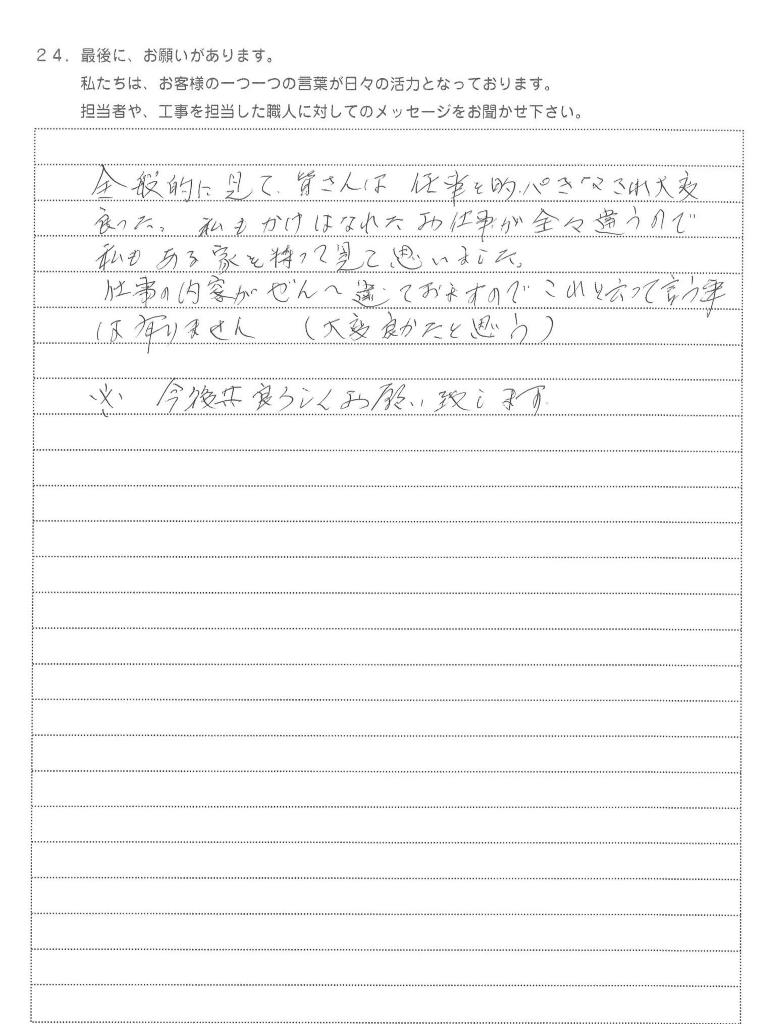 ２４．最後に、お願いがあります。
私たちは、お客様の一つ一つの言葉が日々の活力となっております。
担当者や、工事を担当した職人に対してのメッセージをお聞かせ下さい。
全般的に見て、皆さんは 仕事を的 パキパキされ大変
良った。 私もかけはなれたお仕事が全々違うので
私もある家を持って見て思いました。
仕事の内容がぜん〜違っておますのでこれと云って言う事
は有りません （大変良かたと思う）
※ 今後共良ろしくお願い致します